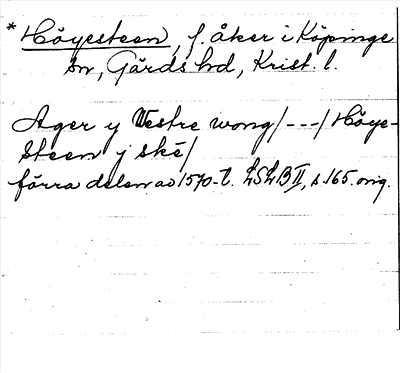 * Höyesteen, f. åker i Köpinge
sn, Gärds hd, Krist. l.
Ager y Westre wong/---/Höye-
steen y ské/
förra delen av 1570-t. LSLB II, s. 165. orig.